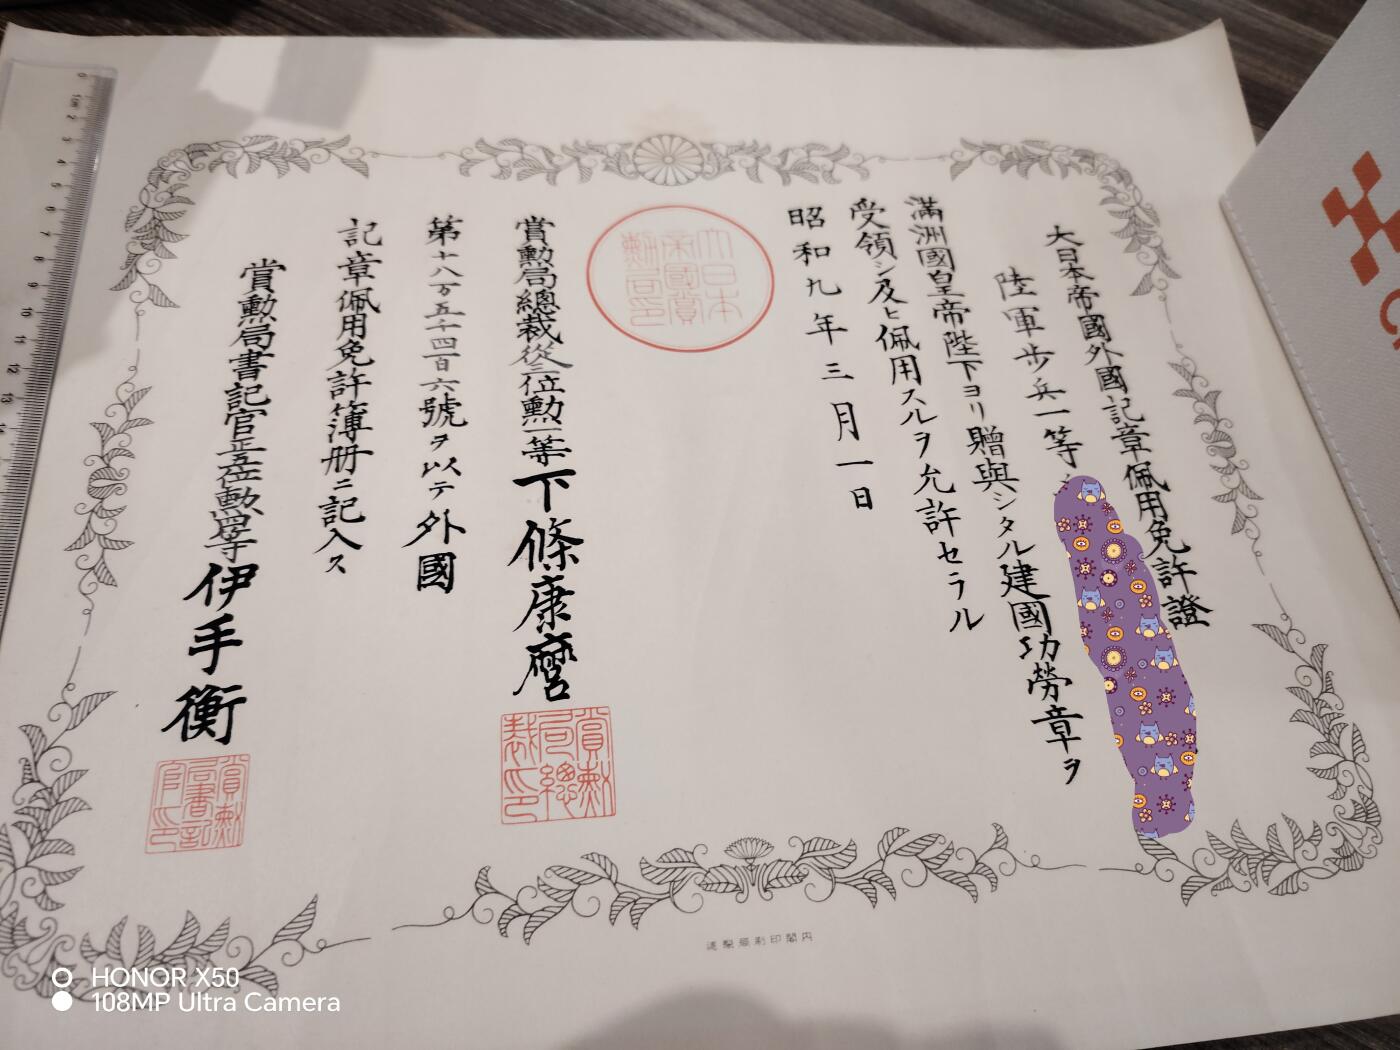 大日本帝國外國記章佩用免許證
陸軍歩兵一等
滿洲國皇帝陛下ヨリ贈與シタル建國功勞章ヲ
受領シ及ヒ佩用スルヲ允許セラル
昭和九年三月一日
大日本
帝國賞
勲局印
賞勲局總裁從三位勲一等下條康麿
賞勲
局總
裁印
第十八万五千四百六號ヲ以テ外國
記章佩用免許簿册ニ記入ス
賞勲局書記官正五位勲四等伊手衡
賞勲
局書記
官印
内閣印刷局製造
HONOR X50
108MP Ultra Camera
0 1cm 2 3 4 5 6 7 8 9 10 11 12 13 14